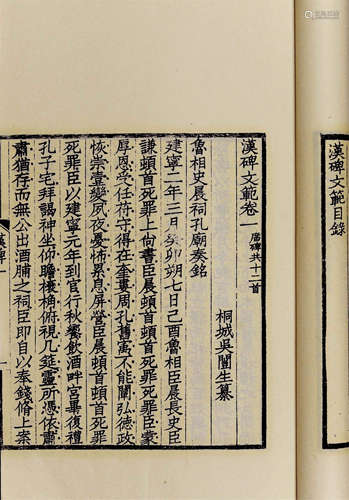 漢碑文範目錄
漢碑文範卷一 廟碑共十二首
桐城吳闓生纂
魯相史晨祠孔廟奏銘
建寧二年三月癸卯朔七日己酉魯相臣晨長史臣
謙頓首死罪上尚書臣晨頓首頓首死罪死罪臣蒙
厚恩受任符守得在奎婁周孔舊寓不能闡弘德政
恢崇壹變夙夜憂怖累息屏營臣晨頓首頓首死罪
死罪臣以建寧元年到官行秋饗飲酒畔宮畢復禮
孔子宅拜謁神坐仰瞻榱桷俯視几筵靈所憑依肅
肅猶存而無公出酒脯之祠臣即自以奉錢脩上案